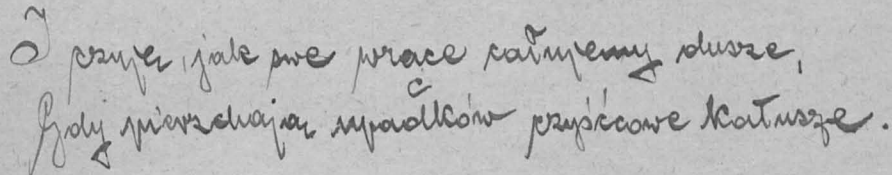 I czuję, jak swe wrące całujemy dusze,
Gdy pierzchają upadków czyśćcowe katusze.